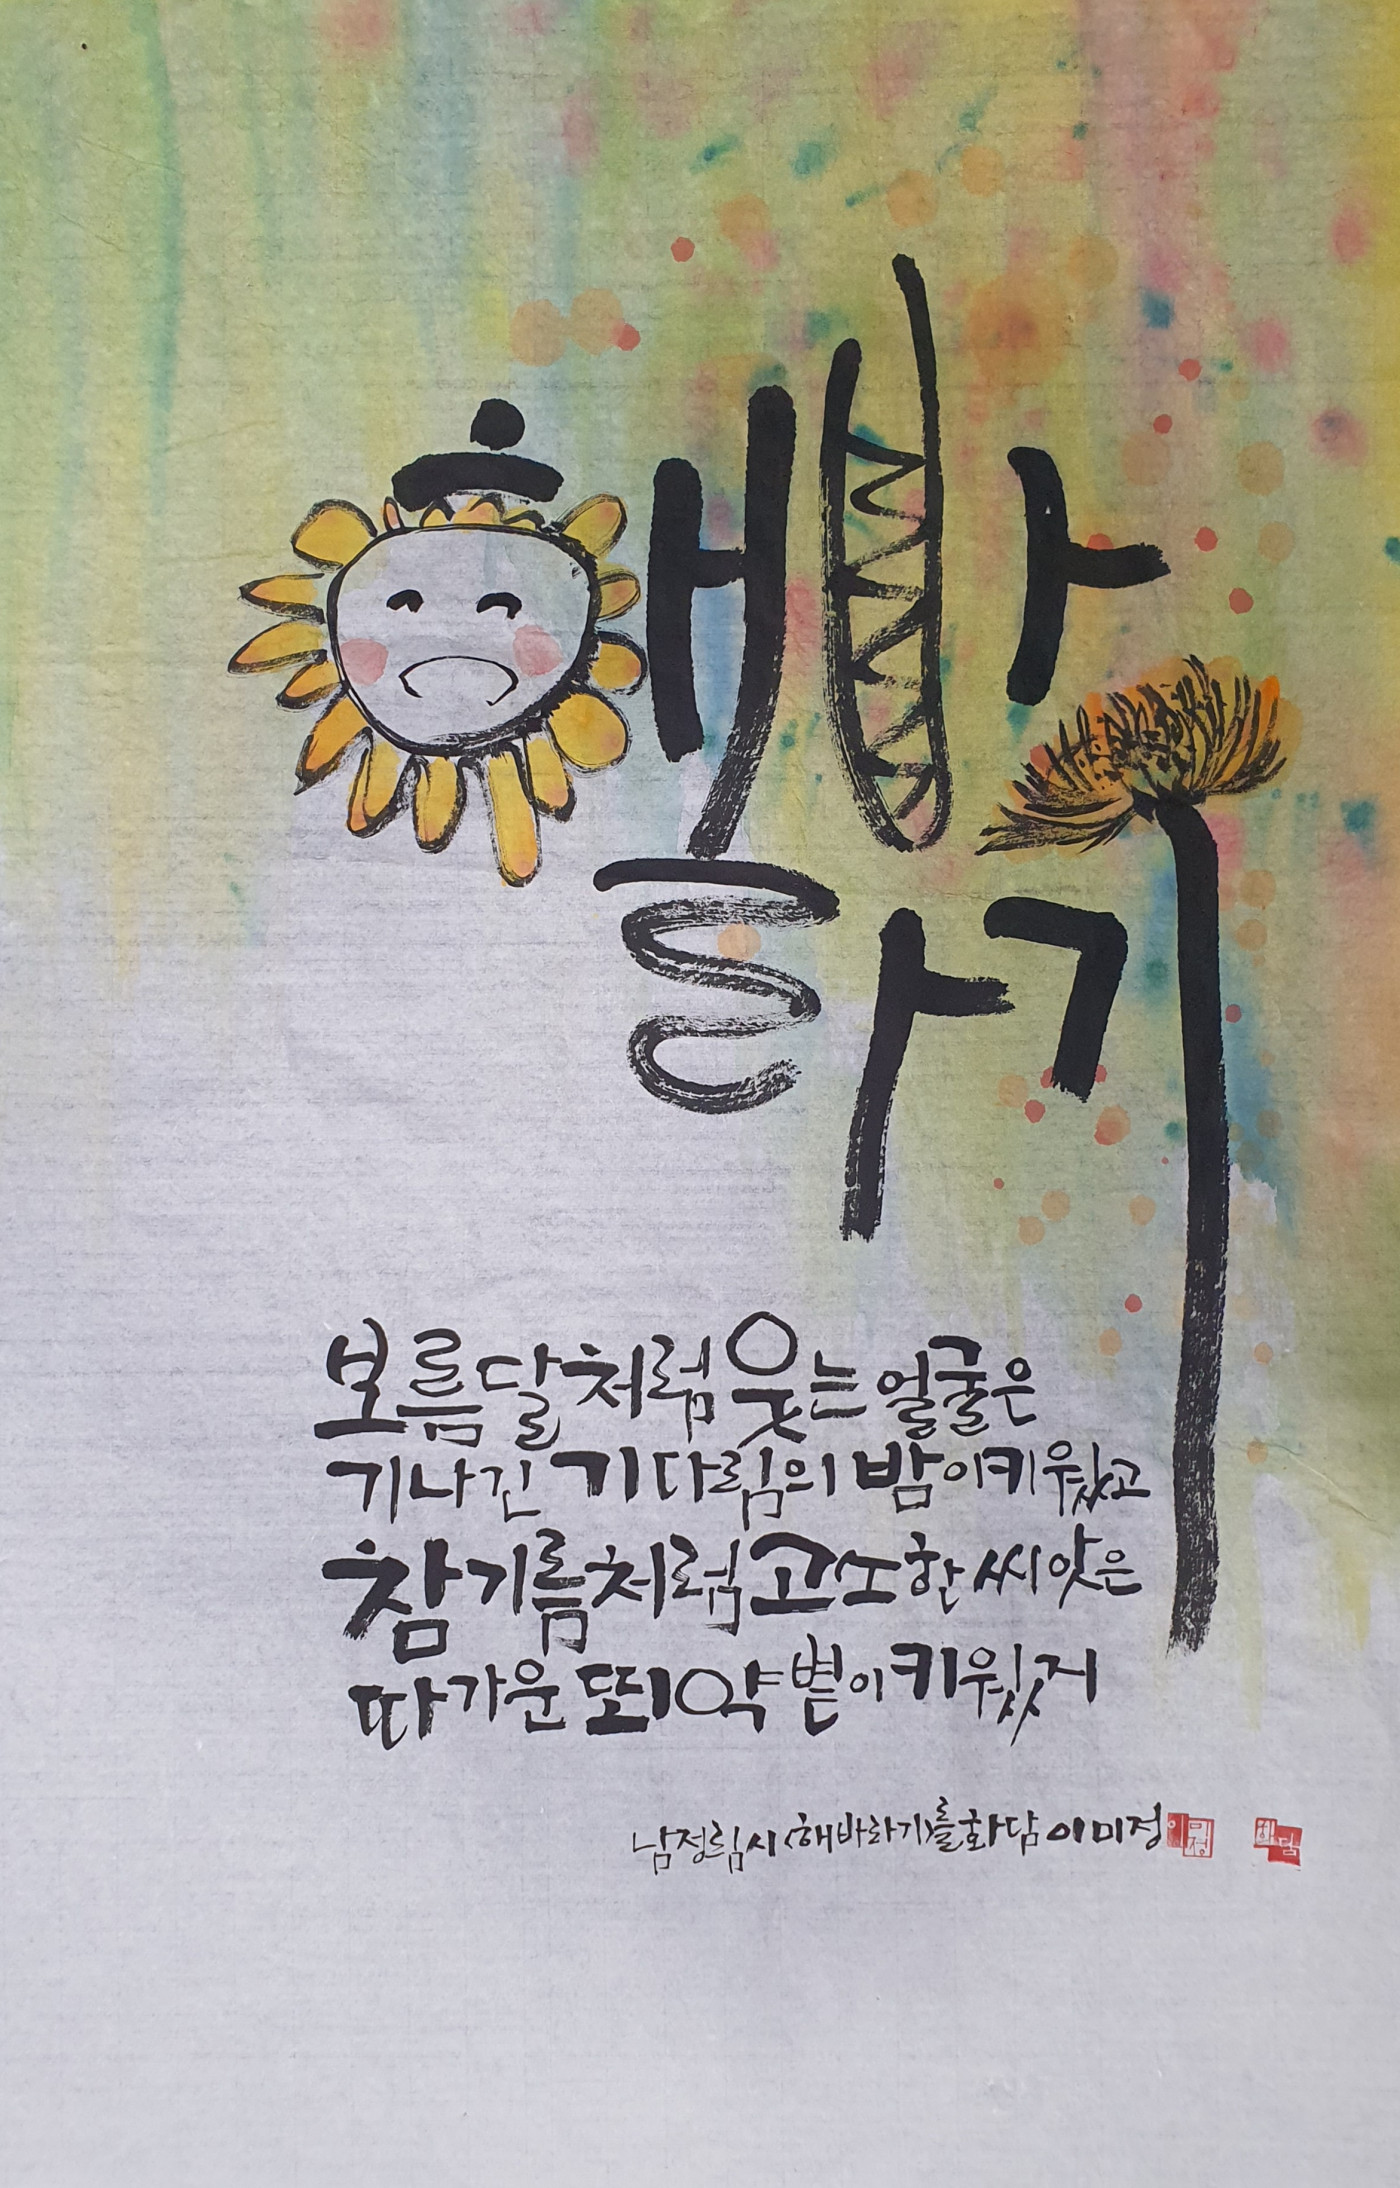 해바
라기
보름달처럼 웃는 얼굴은
기나긴 기다림의 밤이 키웠고
참기름처럼 고소한 씨앗은
따가운 뙤약볕이 키웠지
남정림 시 <해바라기>를 화담 이미정
이미정
화담